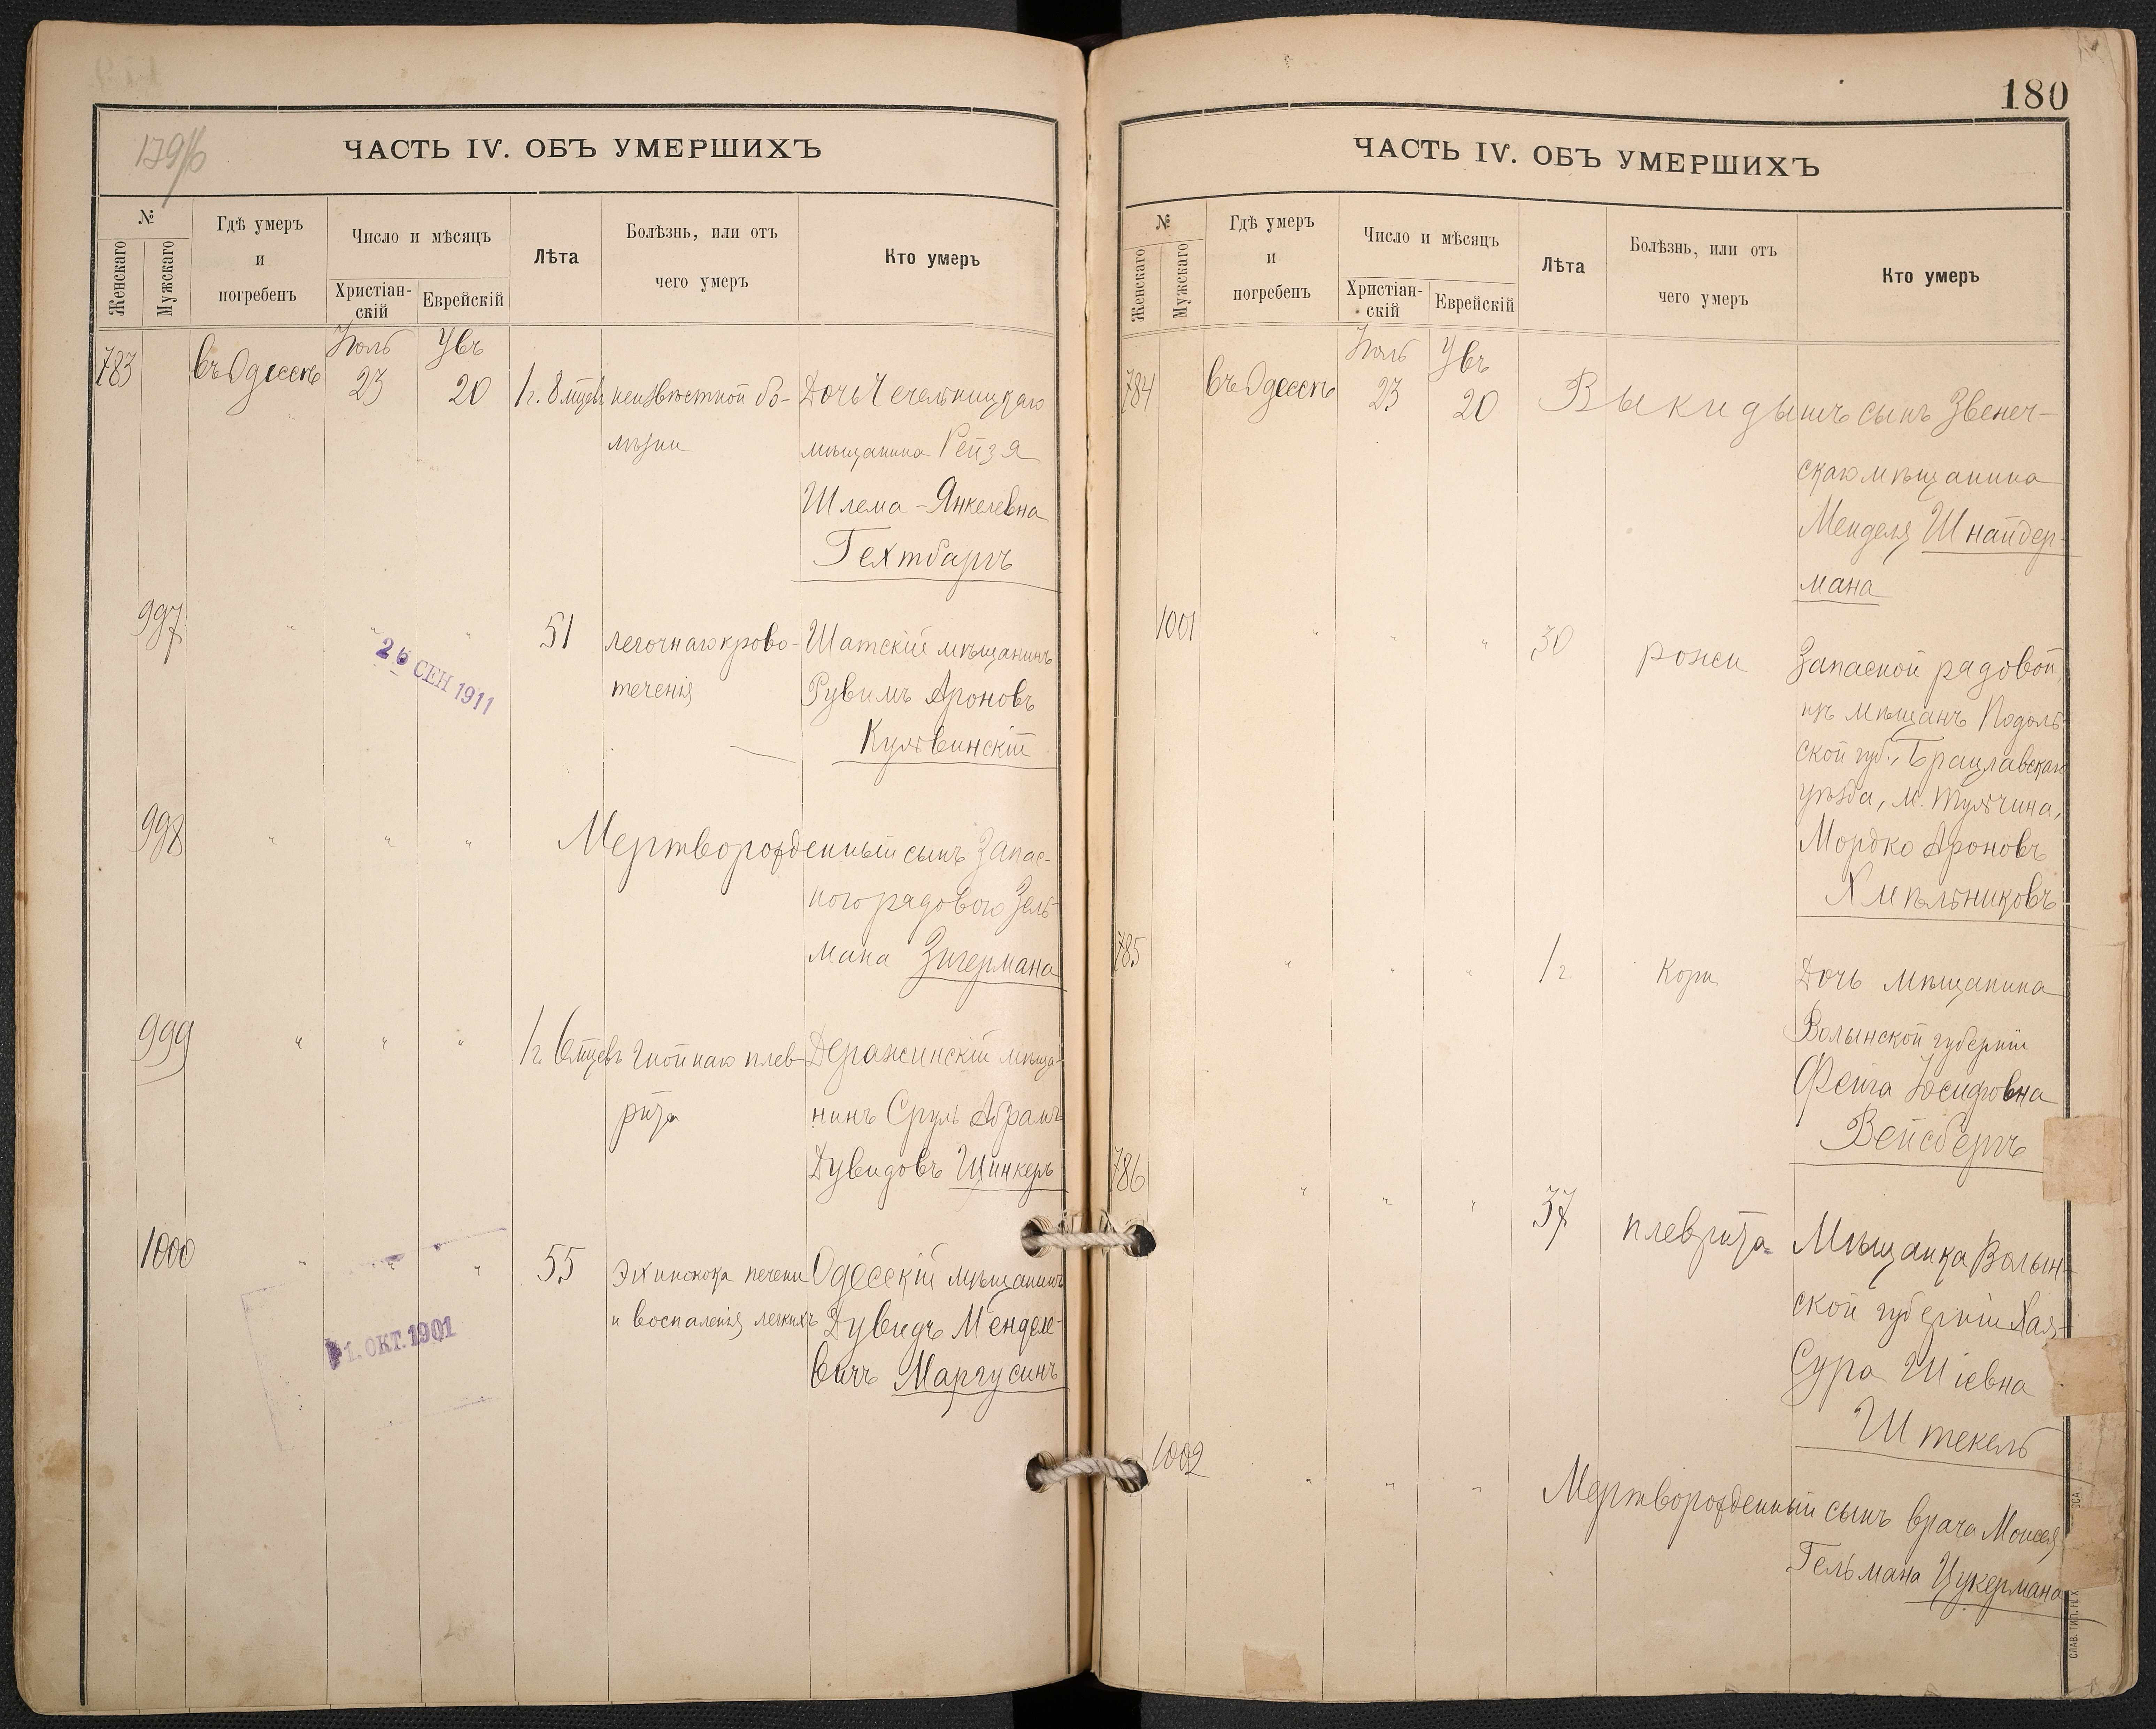 179/б
ЧАСТЬ IV. ОБЪ УМЕРШИХЪ
№
Женскаго
Мужскаго
Гдѣ умеръ
и
погребенъ
Число и мѣсяцъ
Христіан-
скій
Еврейскій
Лѣта
Болѣзнь, или отъ
чего умеръ
Кто умеръ
Іюль Увъ
783 въ Одессѣ 23 20 1 г. 8 мцевъ неизвѣстной бо- Дочь Чечельницкаго
лѣзни мѣщанина Рейзя
Шлема-Янкелевна
Гехтбаргъ
997 " " " 51 легочнаго крово- Шатскій мѣщанинъ
теченія Рувимъ Ароновъ
Кульвинскій
26 СЕН 1911
998 " " " Мертворожденный сынъ Запас-
ного рядового Зель-
мана Зигермана
999 " " " 1 г. 6 мцевъ гнойнаго плев- Деражинскій мѣща-
рита нинъ Сруль Абрамъ
Дувидовъ Шинкеръ
1000 " " " 55 Эхинокока печени Одесскій мѣщанинъ
и воспаленія легкихъ Дувидъ Менделе-
вичъ Маргусинъ
1. ОКТ. 1901
180
ЧАСТЬ IV. ОБЪ УМЕРШИХЪ
№
Женскаго
Мужскаго
Гдѣ умеръ
и
погребенъ
Число и мѣсяцъ
Христіан-
скій
Еврейскій
Лѣта
Болѣзнь, или отъ
чего умеръ
Кто умеръ
Іюль Увъ
784 въ Одессѣ 23 20 Выкидышъ сынъ Звенеч-
скаго мѣщанина
Менделя Шнайдер-
мана
1001 " " " 30 рожи Запасной рядовой,
изъ мѣщанъ Подоль-
ской губ., Брацлавскаго
уѣзда, м. Тульчина,
Мордко Ароновъ
Хмѣльниковъ
785 " " " 1 г. Кори Дочь мѣщанина
Волынской губерніи
Фейга Іосифовна
Вейсбергъ
786 " " " 37 плеврита Мѣщанка Волын-
ской губерніи Хая-
Сура Шіевна
Штекель
1002 " " " Мертворожденный сынъ врача Моисея
Гельмана Цукермана
СЛАВ. ТИП. Н. Х